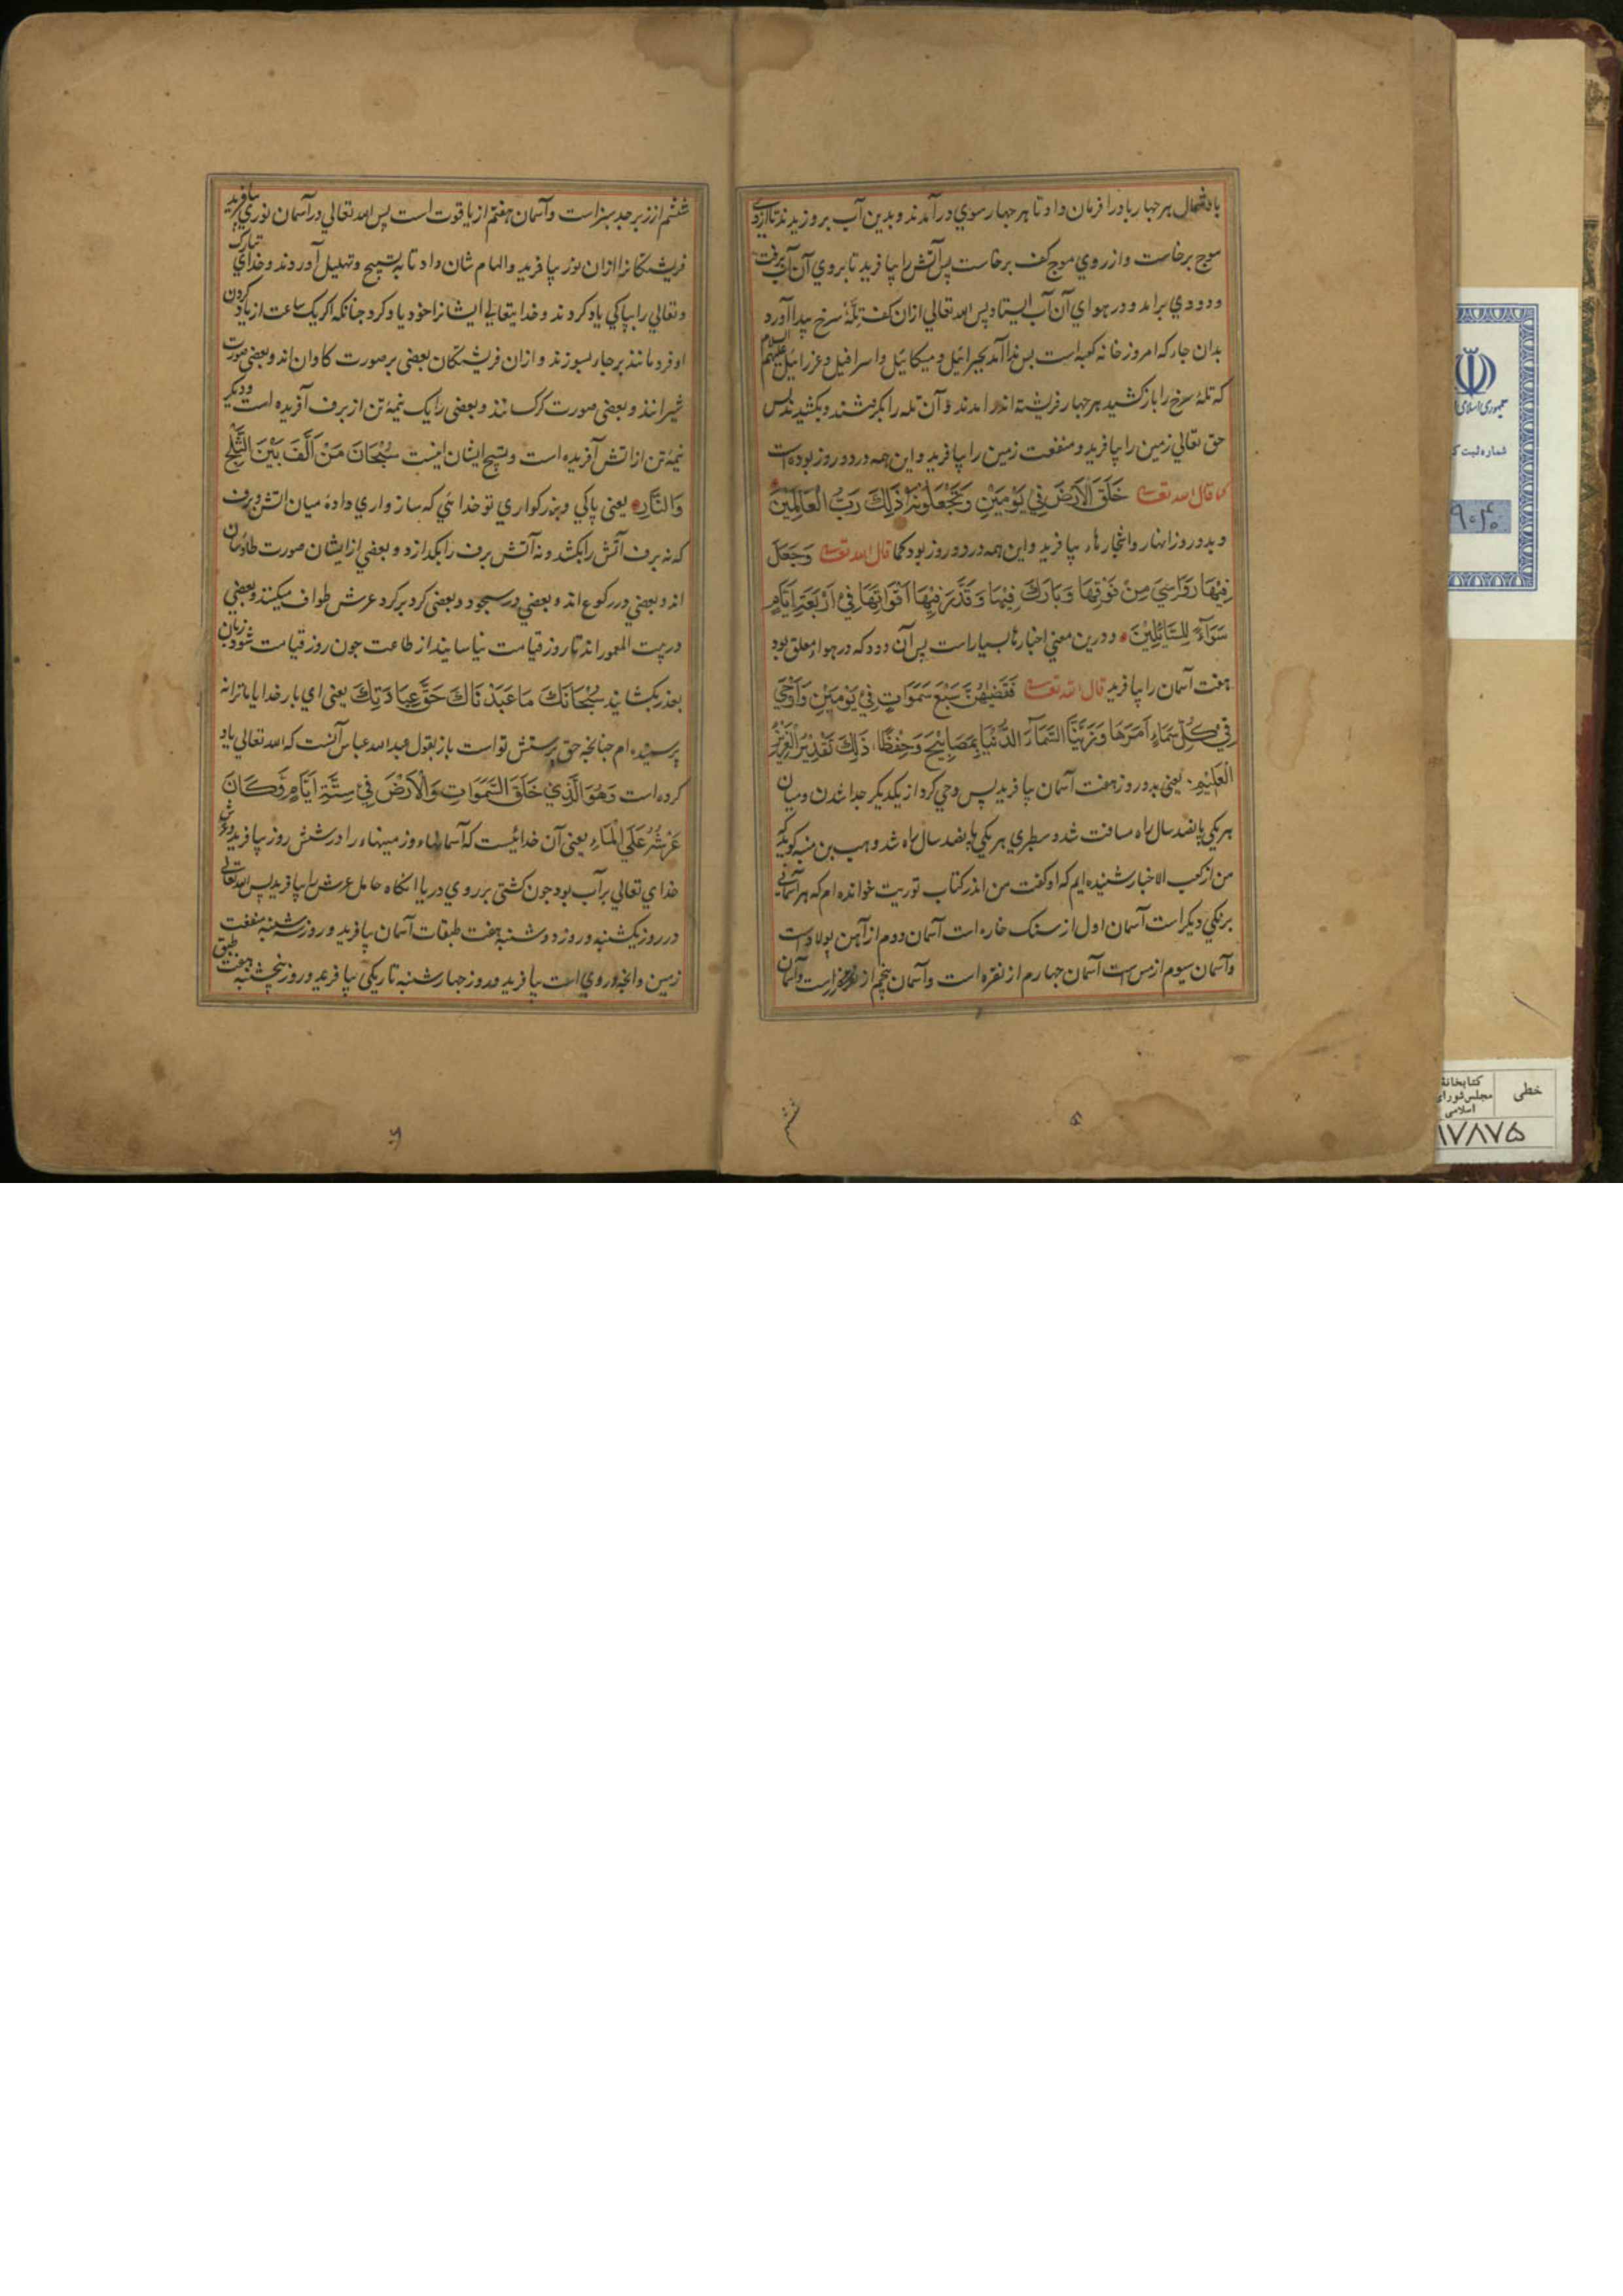 باد شمال هر چهار باد را فرمان داد تا هر چهار سوي در آمدند و بدين آب بر وزيدند تا ازوي
موج برخاست و از روي موج كف برخاست پس آتش را بيافريد تا بروي آن آب برفت
و دودي برامد و در هواي آن آب ايستاد پس الله تعالي ازان كف تلهٔ سرخ پيدا آورد
بدان جاى كه امروز خانه كعبه است پس ندا آمد بجبرائيل و ميكائيل و اسرافيل و عزرائيل عليهم السلام
كه تلهٔ سرخ را باز كشيد هر چهار فريشته اندر امدند و آن تله را بكرفتند و بكشيدند پس
حق تعالي زمين را بيافريد و منفعت زمين را بيافريد و اين همه در دو روز بوده است
كما قال الله تعالى خَلَقَ الْاَرْضَ فِي يَوْمَيْنِ وَتَجْعَلُونَ ذَلِكَ رَبُّ الْعَالَمِيْنَ
و بدو روز انهار و اشجارها بيافريد و اين همه در دو روز بود كما قال الله تعالى وَجَعَلَ
فِيْهَا رَوَاسِيَ مِنْ فَوْقِهَا وَبَارَكَ فِيْهَا وَقَدَّرَ فِيْهَا اَقْوَاتَهَا فِيْ اَرْبَعَةِ اَيَّامٍ
سَوَآءً لِلسَّآئِلِيْنَ و درين معني اخبارها بسيار است پس آن دود كه در هواء معلق بود
هفت آسمان را بيافريد قال الله تعالى فَقَضٰهُنَّ سَبْعَ سَمَوَاتٍ فِيْ يَوْمَيْنِ وَاَوْحَي
فِي كُلِّ سَمَاءٍ اَمْرَهَا وَزَيَّنَّا السَّمَآءَ الدُّنْيَا بِمَصَابِيْحَ وَحِفْظًا ذَلِكَ تَقْدِيْرُ الْعَزِيْزِ
الْعَلِيْمِ يعني بدو روز هفت آسمان بيافريد پس وحي كرد از يكديكر جدا شدن و ميان
هر يكي پانصد سال راه مسافت شد و سطبري هر يكي پانصد سال راه شد و هب بن منبه كويد كه
من از كعب الاخبار شنيده ايم كه او كفت من اندر كتاب توريت خوانده ام كه هر آسماني
برنكي ديكر است آسمان اول از سنك خاره است آسمان دوم از آهن پولاد است
و آسمان سيوم از مس است آسمان چهارم از نقره است و آسمان پنجم از زر است و آسمان
ششم
۵
ششم از زبرجد سبز است و آسمان هفتم از ياقوت است پس الله تعالي در آسمان نوري بيافريد
فريشتكانرا ازان نور بيافريد و الهام شان داد تا به تسبيح و تهليل آوردند و خداي تبارك
و تعالي را بپاكي ياد كردند و خدايتعالي ايشانرا خود ياد كرد چنانكه اكر يك ساعت از ياد كردن
او فرو مانند برجاء بسوزند و ازان فريشتكان بعضى بر صورت كاوان اند و بعضى صورت
شيرانند و بعضى صورت كركسانند و بعضى را يك نيمهٔ تن از برف آفريده است و ديكر
نيمهٔ تن از اتش آفريده است و تسبيح اينان اينست سُبْحَانَ مَنْ اَلَّفَ بَيْنَ الثَّلْجِ
وَالنَّارِ يعنى پاكي و بزركواري تو خدائي كه سازواري دادهٔ ميان اتش و برف
كه نه برف آتش را بكشد و نه آتش برف را بكدازد و بعضي از ايشان صورت طاوسان
اند و بعضي در ركوع اند و بعضي در سجود و بعضى كرد بر كرد عرش طواف ميكنند و بعضى
در بيت المعمور اند تا روز قيامت نياسايند از طاعت چون روز قيامت شود زبان
بعذر بكشايند سُبْحَانَكَ مَا عَبَدْنَاكَ حَقَّ عِبَادَتِكَ يعنى اي بار خدايا ما ترا نه
پرستيده ام چنانچه حق پرستش تو است باز بقول عبد الله عباس آنست كه الله تعالي ياد
كرده است وَهُوَ الَّذِيْ خَلَقَ السَّمَوَاتِ وَالْاَرْضَ فِيْ سِتَّةِ اَيَّامٍ وَّكَانَ
عَرْشُهُ عَلَي الْمَاءِ يعني آن خدائيست كه آسمانها و زمينهاء را در شش روز بيافريد و عرش
خداي تعالي بر آب بود چون كشتى بر روي دريا انكاه حامل عرش را بيافريد پس الله تعالي
در روز يكشنبه و روز دوشنبه هفت طبقات آسمان بيافريد و روز سه شنبه منفعت
زمين و انچه در وي است بيافريد و روز چهارشنبه تاريكي بيافريد و روز پنجشنبه هفت طبق
۶
جمهوری اسلامی
شماره ثبت ک
۹۰۴۰
خطی
کتابخانهٔ
مجلس شورای
اسلامی
۱۷۸۷۵